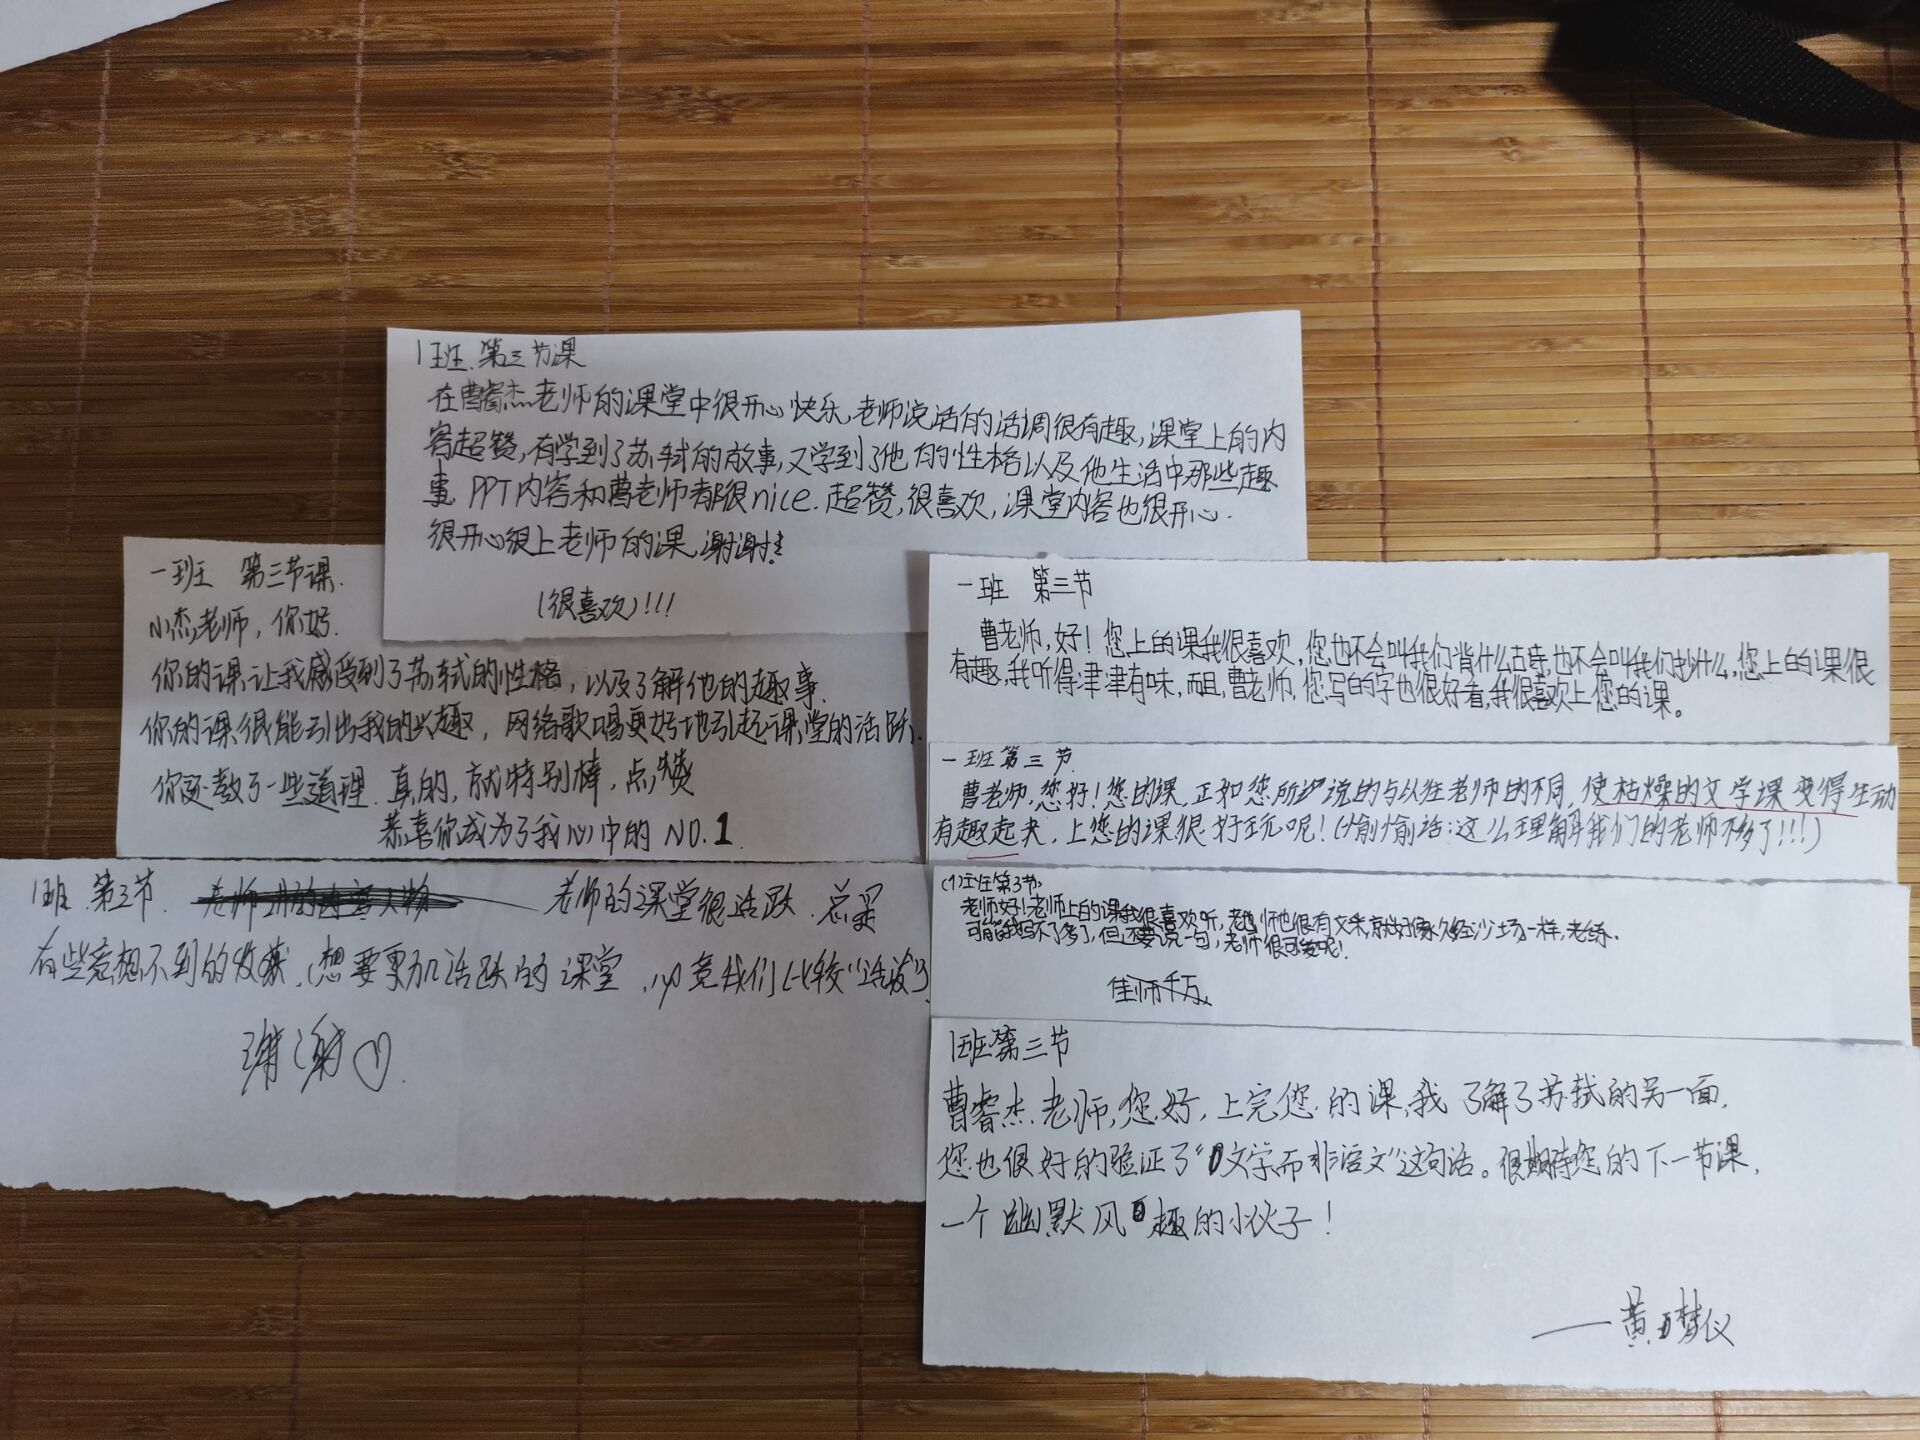 1班.第三节课
在曹睿杰老师的课堂中很开心快乐,老师说话的语调很有趣,课堂上的内
容超赞,有学到了苏轼的故事,又学到了他的性格以及他生活中那些趣
事 PPT内容和曹老师都很nice.超赞,很喜欢,课堂内容也很开心.
很开心很上老师的课,谢谢!
(很喜欢)!!!
一班 第三节课.
小杰老师,你好.
你的课让我感受到了苏轼的性格,以及了解他的趣事.
你的课很能引出我的兴趣,网络歌唱更好地引起课堂的活跃.
你还教了一些道理.真的,就特别棒,点赞
恭喜你成为了我心中的 NO.1.
1班.第三节. 老师的课堂很活跃.总是
有些意想不到的收获,(想要更加活跃的课堂,毕竟我们比较“活泼”)
谢谢
一班 第三节
曹老师,好!您上的课我很喜欢,您也不会叫我们背什么古诗,也不会叫我们抄什么,您上的课很
有趣,我听得津津有味,而且,曹老师,您写的字也很好看,我很喜欢上您的课。
一班第三节.
曹老师,您好!您的课,正如您所说的与以往老师的不同,使枯燥的文学课变得生动
有趣起来,上您的课很好玩呢!(偷偷话:这么理解我们的老师不多了!!!)
(1)班第3节
老师好!老师上的课我很喜欢听,老师也很有文采,就好像久经沙场一样,老练.
可能我写不了多了,但还要说一句,老师很可爱呢!
佳师千万
1班第三节
曹睿杰老师,您好,上完您的课,我了解了苏轼的另一面,
您也很好的验证了“文学而非语文”这句话。很期待您的下一节课,
一个幽默风趣的小伙子!
——黄梦仪